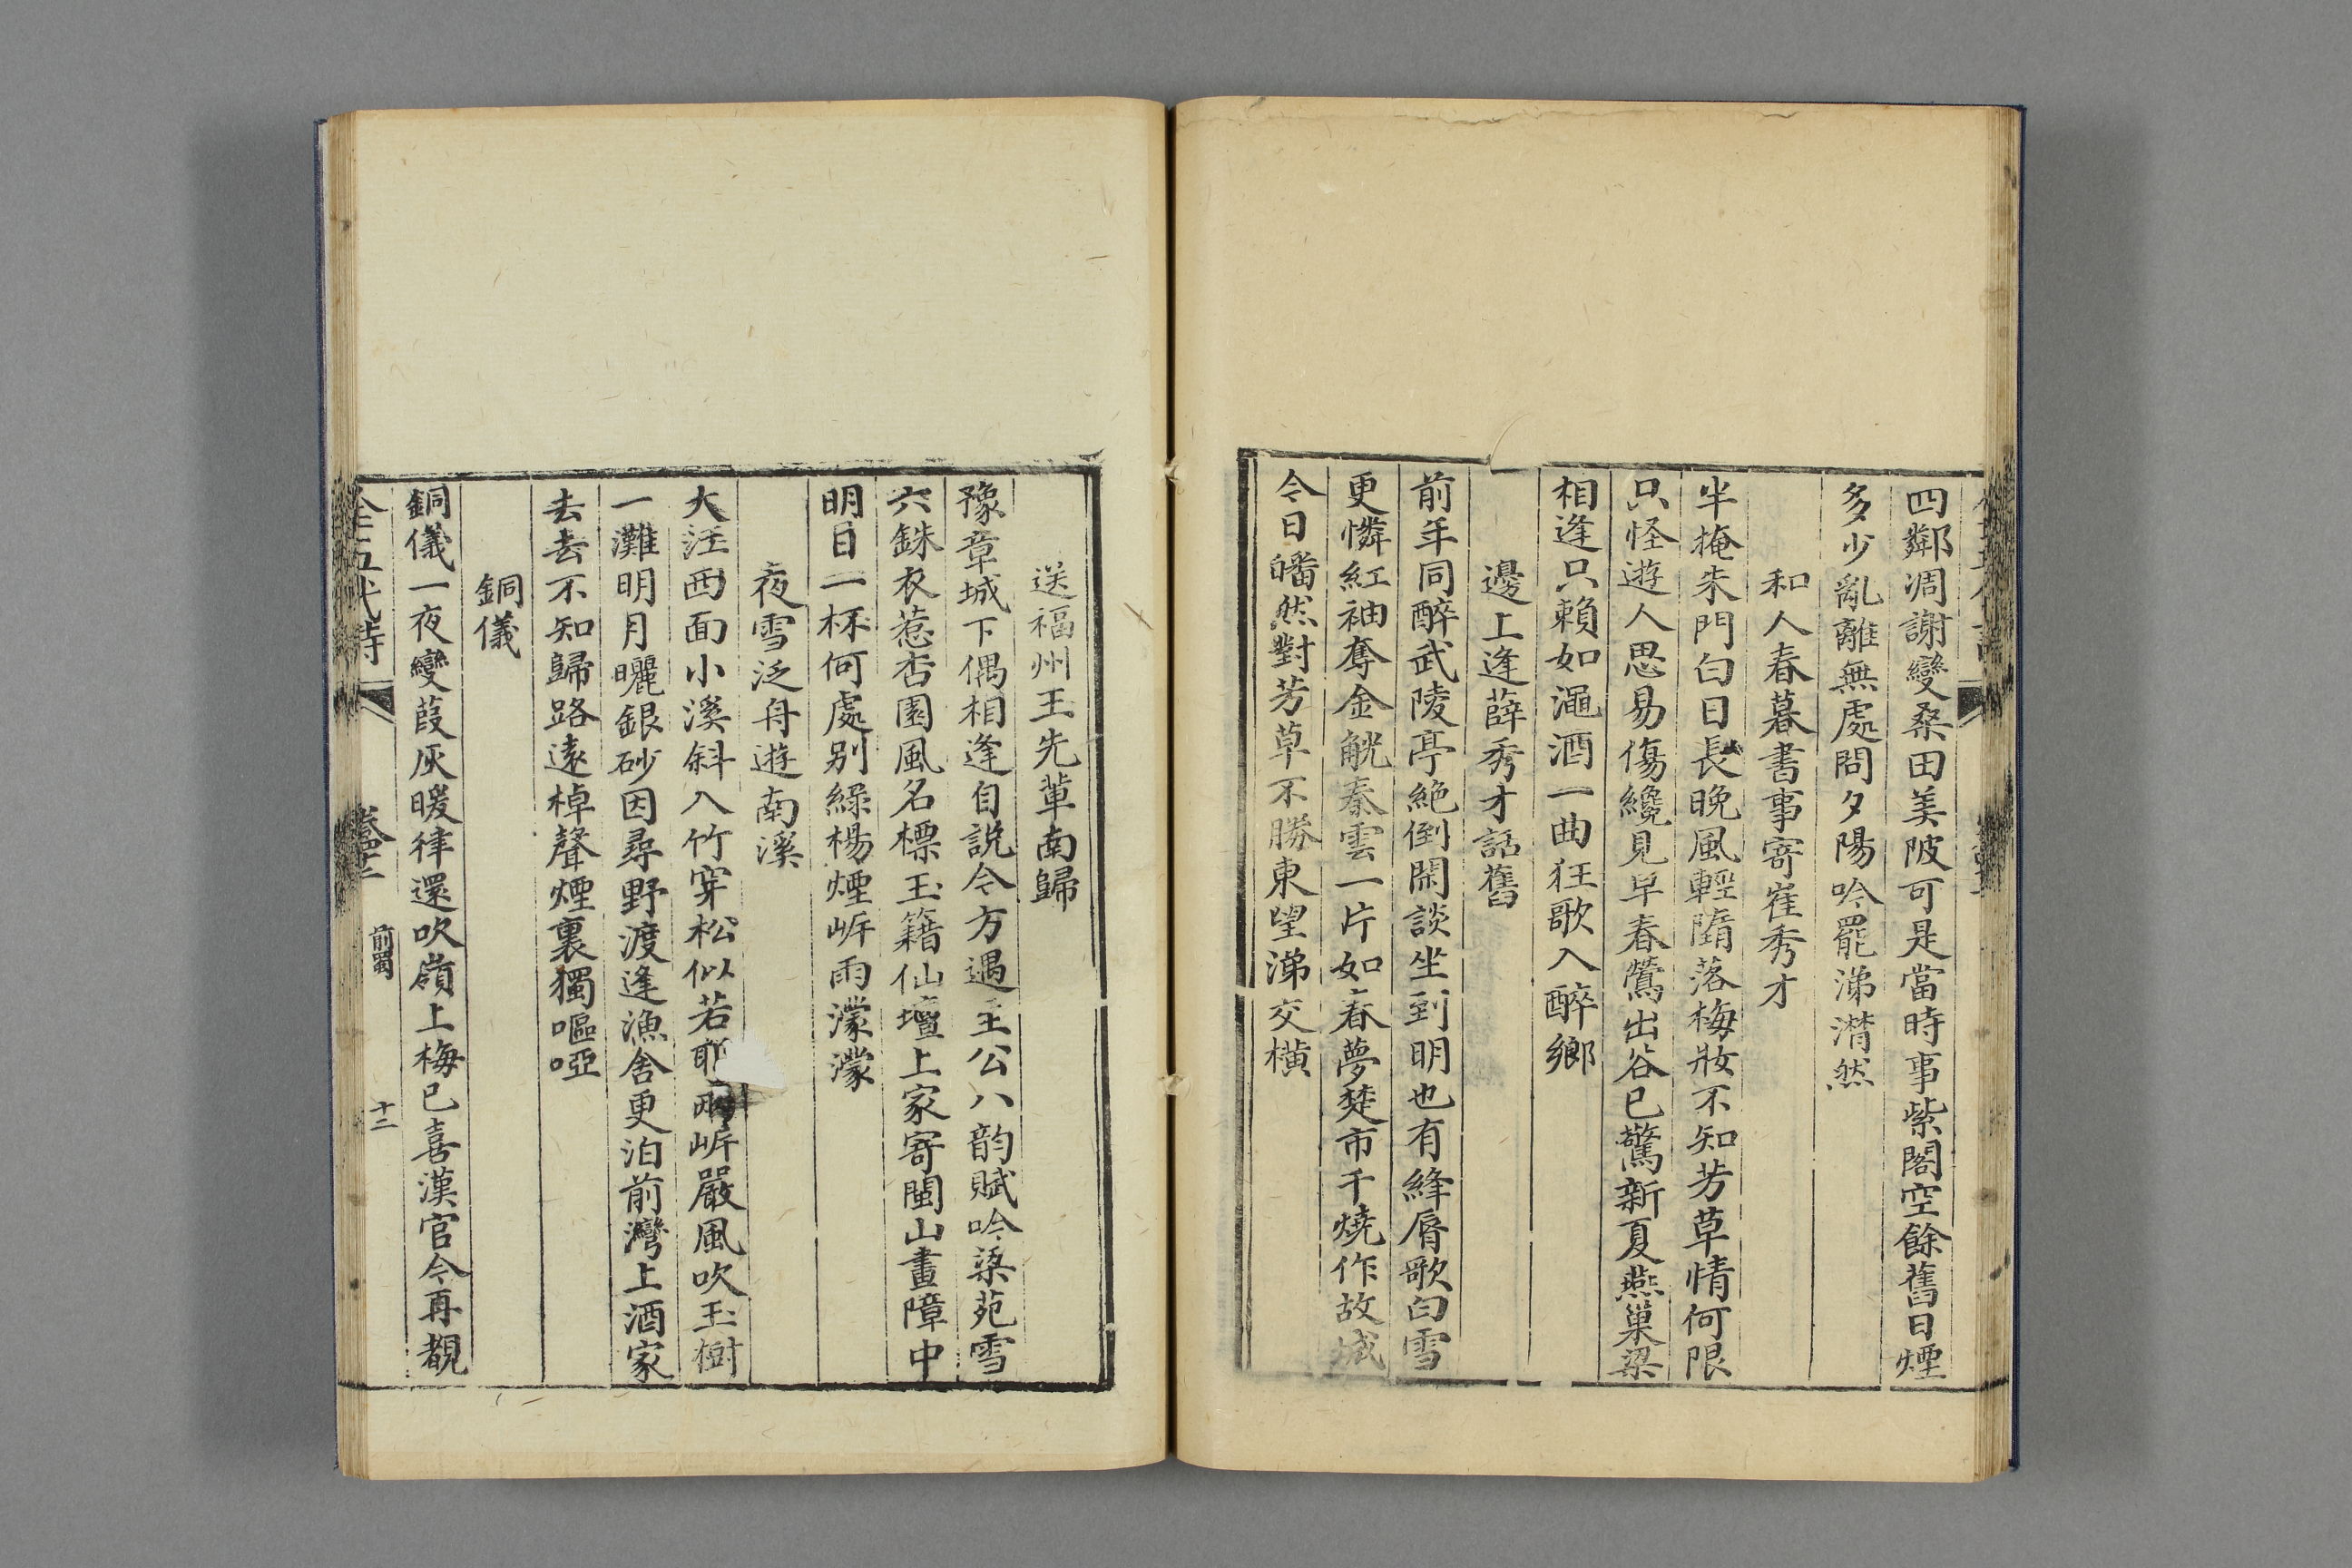 四鄰凋謝變桑田美陂可是當時事紫閣空餘舊日煙
多少亂離無處問夕陽吟罷涕潸然
和人春暮書事寄崔秀才
半掩朱門白日長晚風輕隋落梅妝不知芳草情何限
只怪遊人思易傷纔見早春鶯出谷已驚新夏燕巢梁
相逢只賴如澠酒一曲狂歌入醉鄉
邊上逢薛秀才話舊
前年同醉武陵亭絕倒閑談坐到明也有絳脣歌白雪
更憐紅袖奪金觥秦雲一片如春夢楚市千燒作故城
今日皤然對芳草不勝東望涕交橫
送福州王先輩南歸
豫章城下偶相逢自說今方遇至公八韵賦吟梁苑雪
六銖衣惹杏園風名標玉籍仙壇上家寄閩山畫障中
明日一杯何處别綠楊煙岸雨濛濛
夜雪泛舟遊南溪
大江西面小溪斜入竹穿松似若耶兩岸嚴風吹玉樹
一灘明月曬銀砂因尋野渡逢漁舍更泊前灣上酒家
去去不知歸路遠棹聲煙裏獨嘔啞
銅儀
銅儀一夜變葭灰暖律還吹嶺上梅已喜漢官今再覩
全五代詩 前蜀 十二